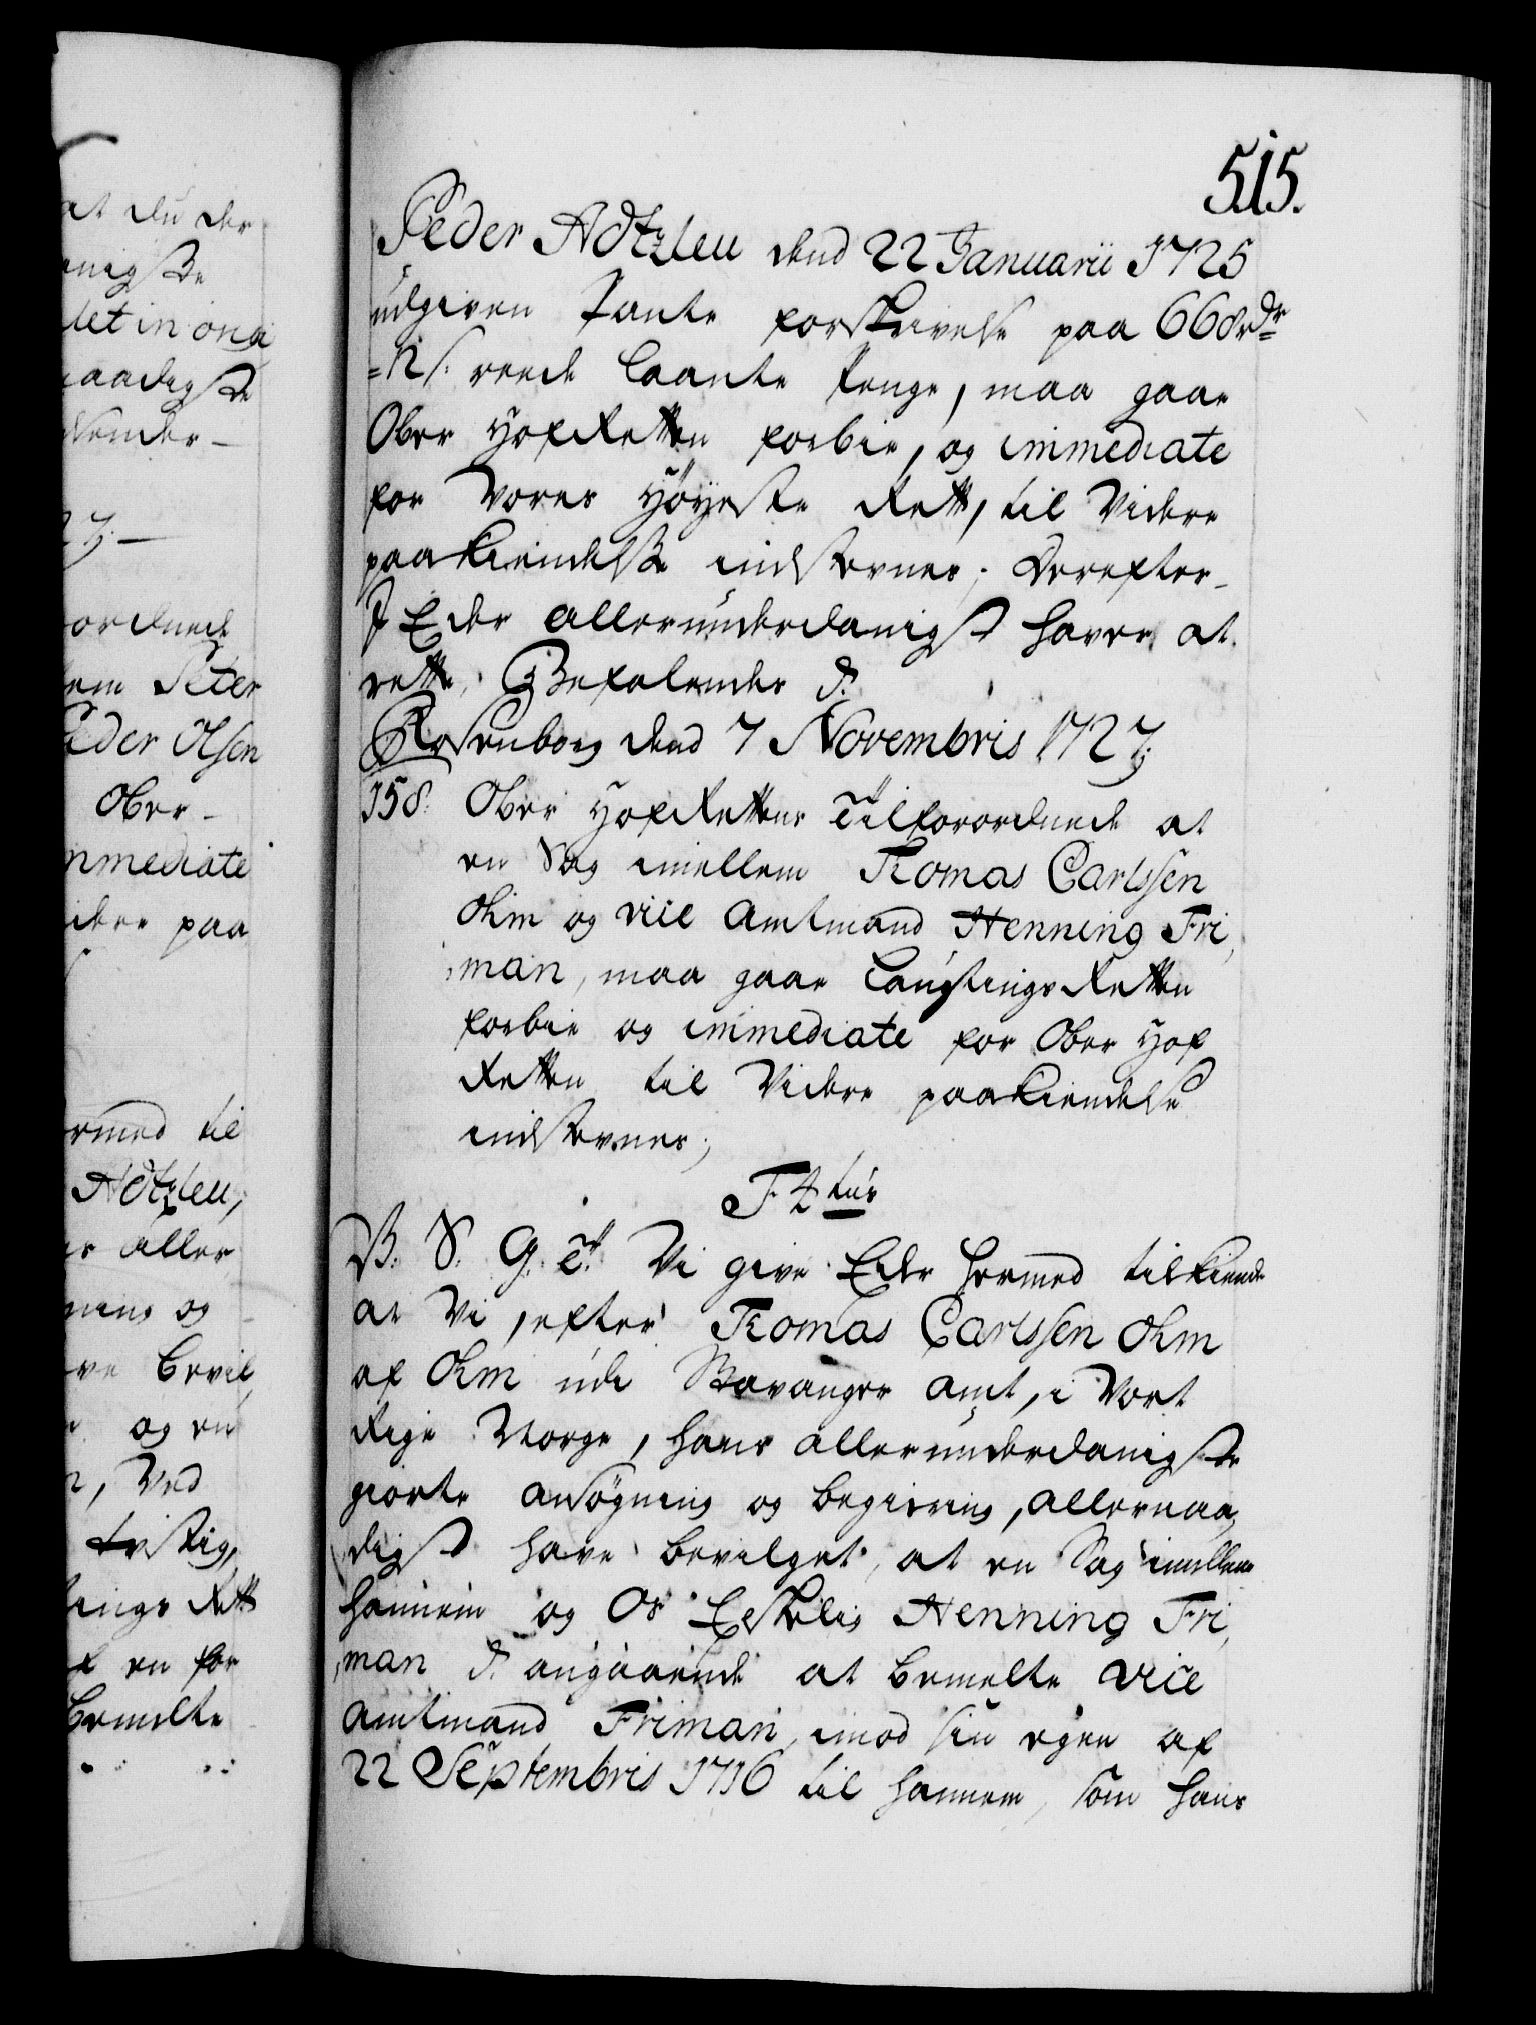 515.
Peder Adtzleu dend 22 Januarii 1725
udgiven Pante forskrivelse paa 668 rdr
=n s: reede laante Penge, maa gaae
Ober Hof Retten forbie, og immediate
for Vores Høyeste Rett, til Videre
paakiendelse indstevnes; Derefter
I Eder allerunderdanigst haver at
rette, Befalendes d:
Rosenborg dend 7 Novembris 1727.
158. Ober Hof Rettens Tilforordnede at
en Sag imellem Thomas Carlssen
Ohm og vice Amtmand Henning Fri,
,man, maa gaae Laugtings Retten
forbie og immediate for Ober Hof
Retten til Videre paakiendelse
indstevnes;
F 4 tus
V. S. G. T. Vi give Eder hermed tilkiende
at Vi, efter Thomas Carlssen Ohm
af Ohm udi Stavanger Amt, i Vort
Rige Norge, hans allerunderdanigste
giorte ansøgning og begiering, allernaa,
digst have bevilget, at en Sag imellem
hannem og Os Elskelig Henning Fri,
,man d. angaaende at bemelte vice
Amtmand Friman, imod sin egen af
22 Septembris 1716 til hannem, som hans
at du der
Peter
Peder Olsen
Ober-
immediate
paa
til
Adtzleu,
aller
og
bevil,
og en
, Ved
tings Rett
en for
bemelte